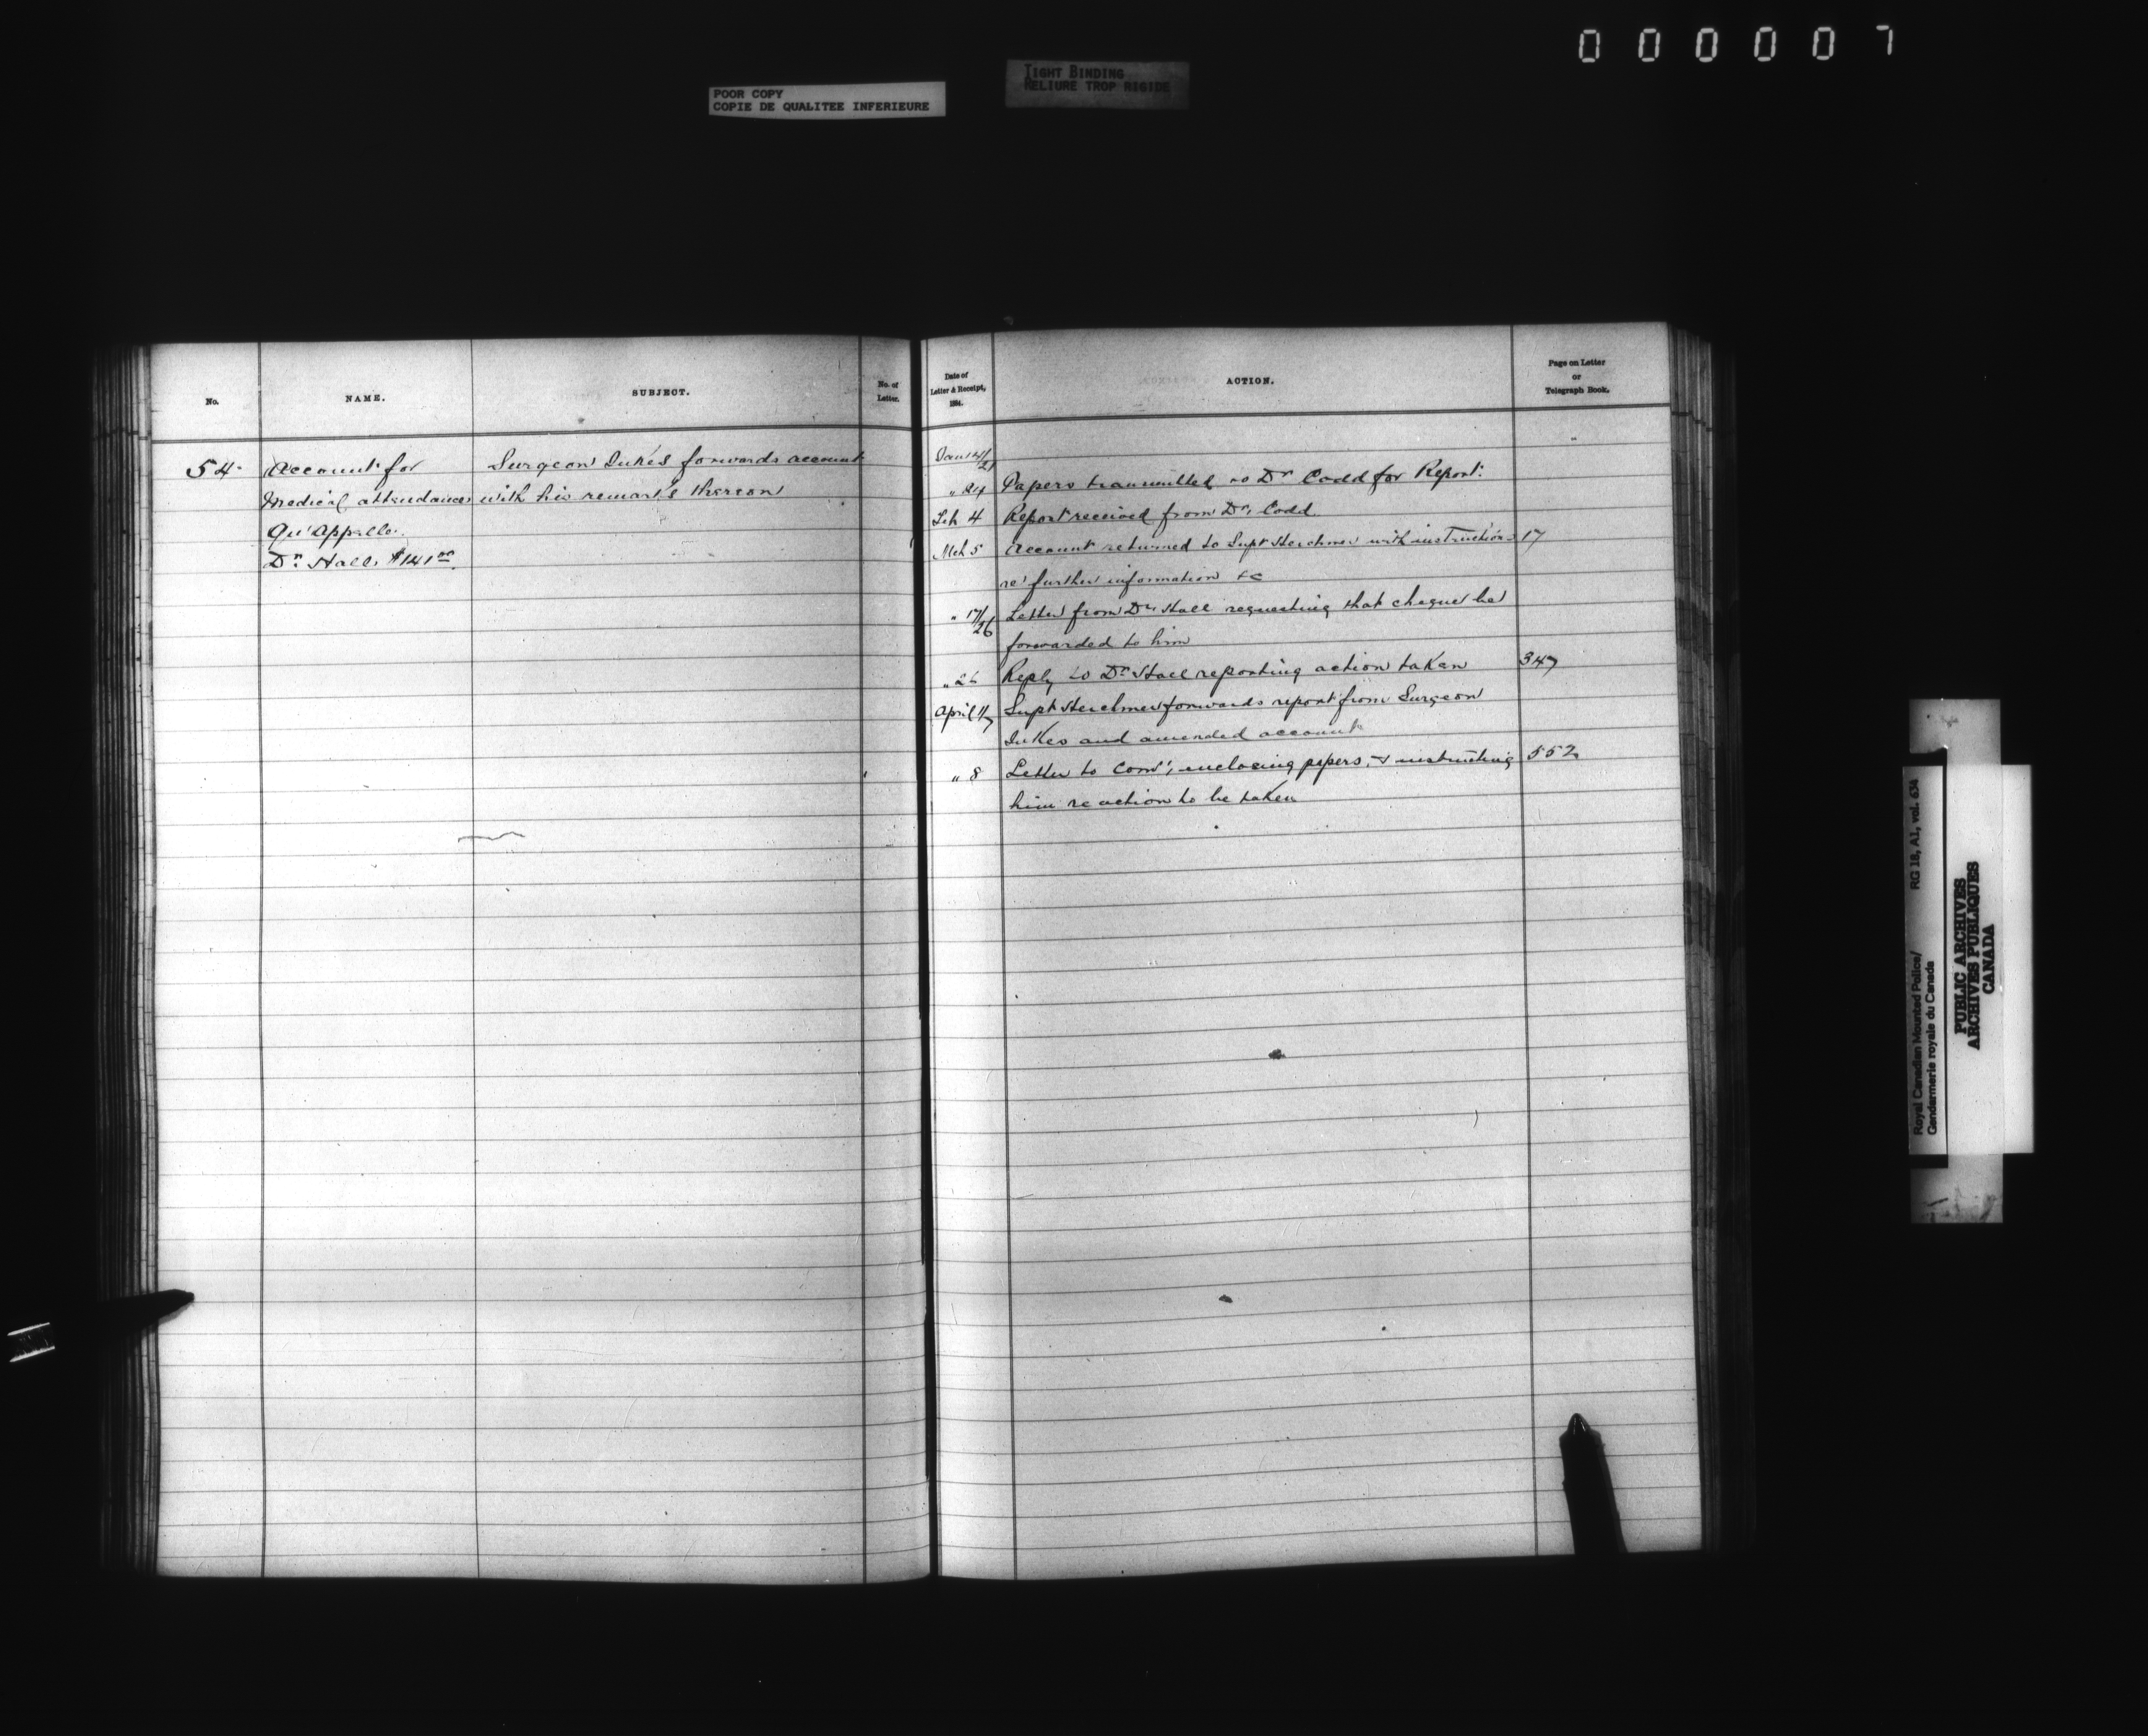 000007
POOR COPY
COPIE DE QUALITEE INFERIEURE
TIGHT BINDING
RELIURE TROP RIGIDE
No.
NAME.
SUBJECT.
No. of
Letter.
54
Account for
Medical attendance
Qu'Appelle.
Dr. Hall. $141.00
Surgeon Jukes forwards account
with his remarks thereon
Date of
Letter & Receipt,
1884.
ACTION.
Page on Letter
or
Telegraph Book.
Jany 14/21
" 24 Papers transmitted to Dr Codd for Report.
Feb 4 Report received from Dr. Codd.
Mch 5 Account returned to Supt Herchmer with instructions 17
re further information &c
" 17/26 Letter from Dr. Hall requesting that cheque be
forwarded to him
" 26 Reply to Dr Hall reporting action taken 347
April 1/7 Supt Herchmer forwards report from Surgeon
Jukes and amended account
" 8 Letter to Comr, enclosing papers, & instructing 552
him re action to be taken
Royal Canadian Mounted Police/ RG 18, A1, vol. 634
Gendarmerie royale du Canada
PUBLIC ARCHIVES
ARCHIVES PUBLIQUES
CANADA